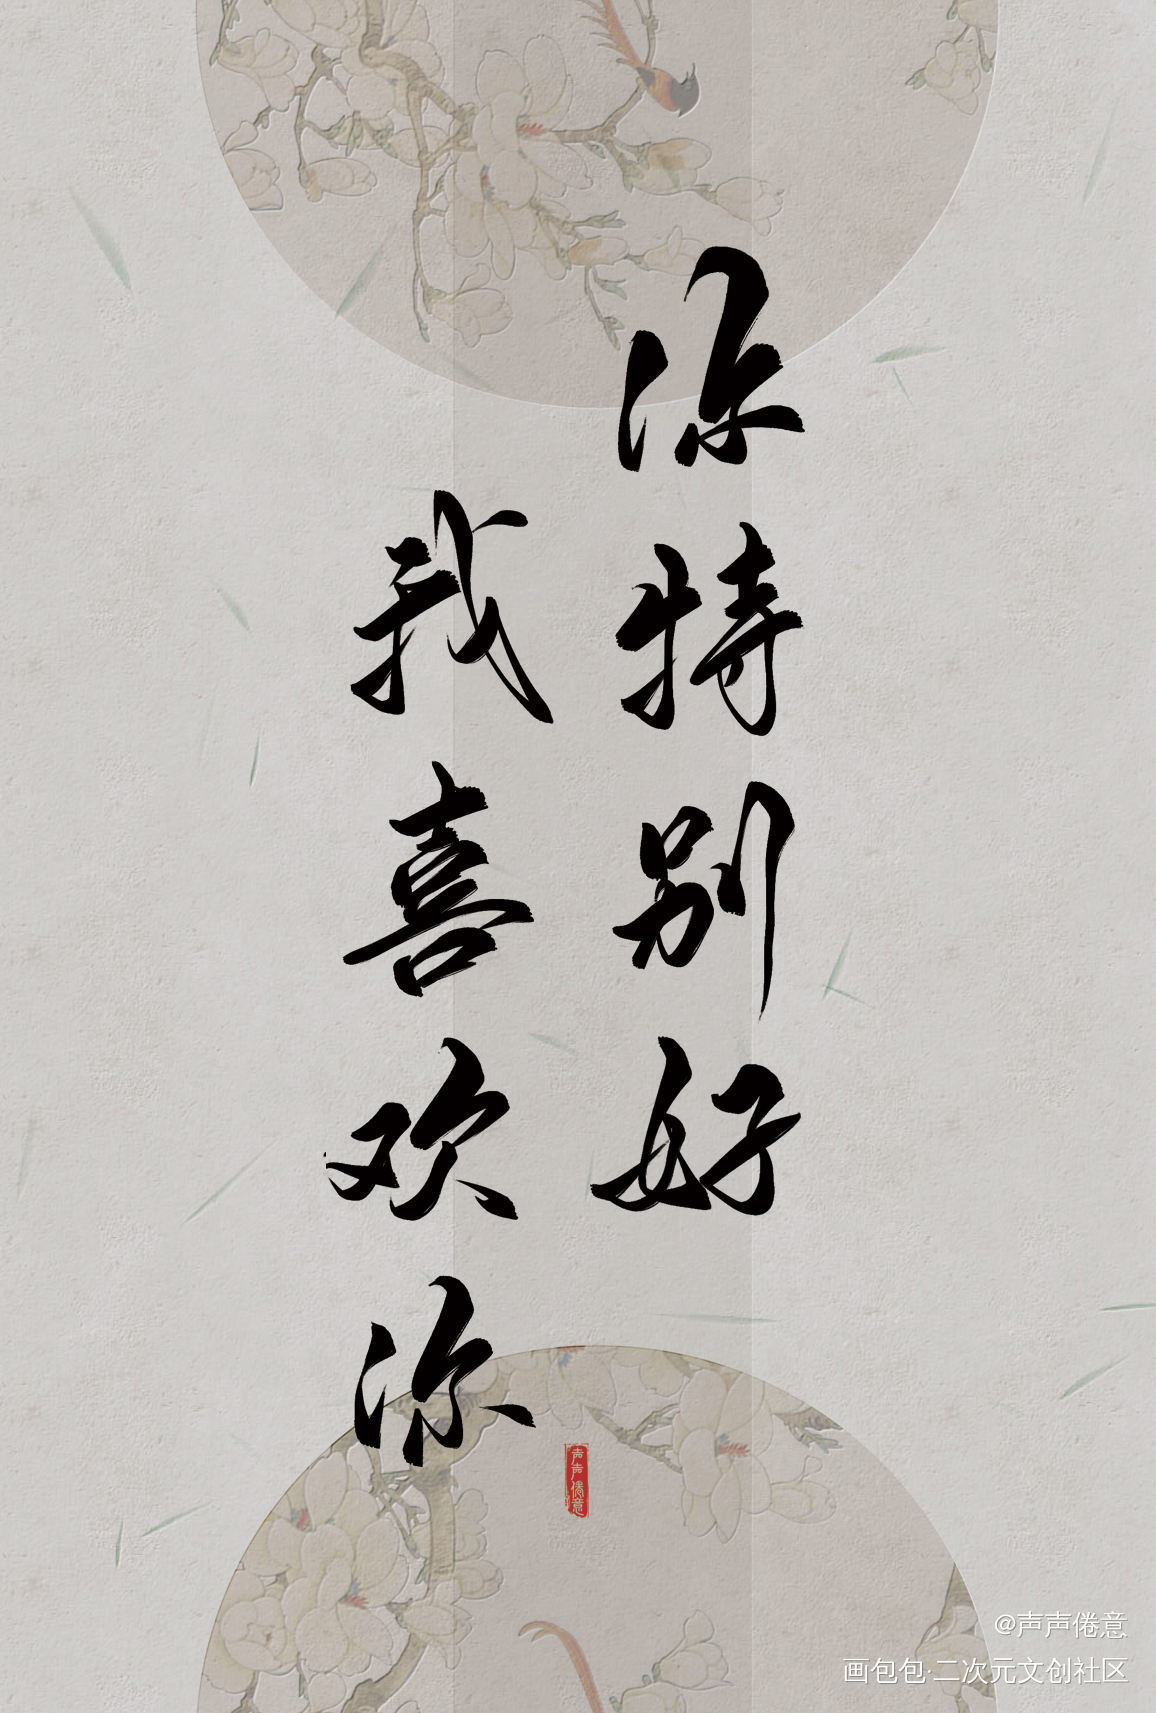 你特别好
我喜欢你
声声倦意
@声声倦意
画包包·二次元文创社区